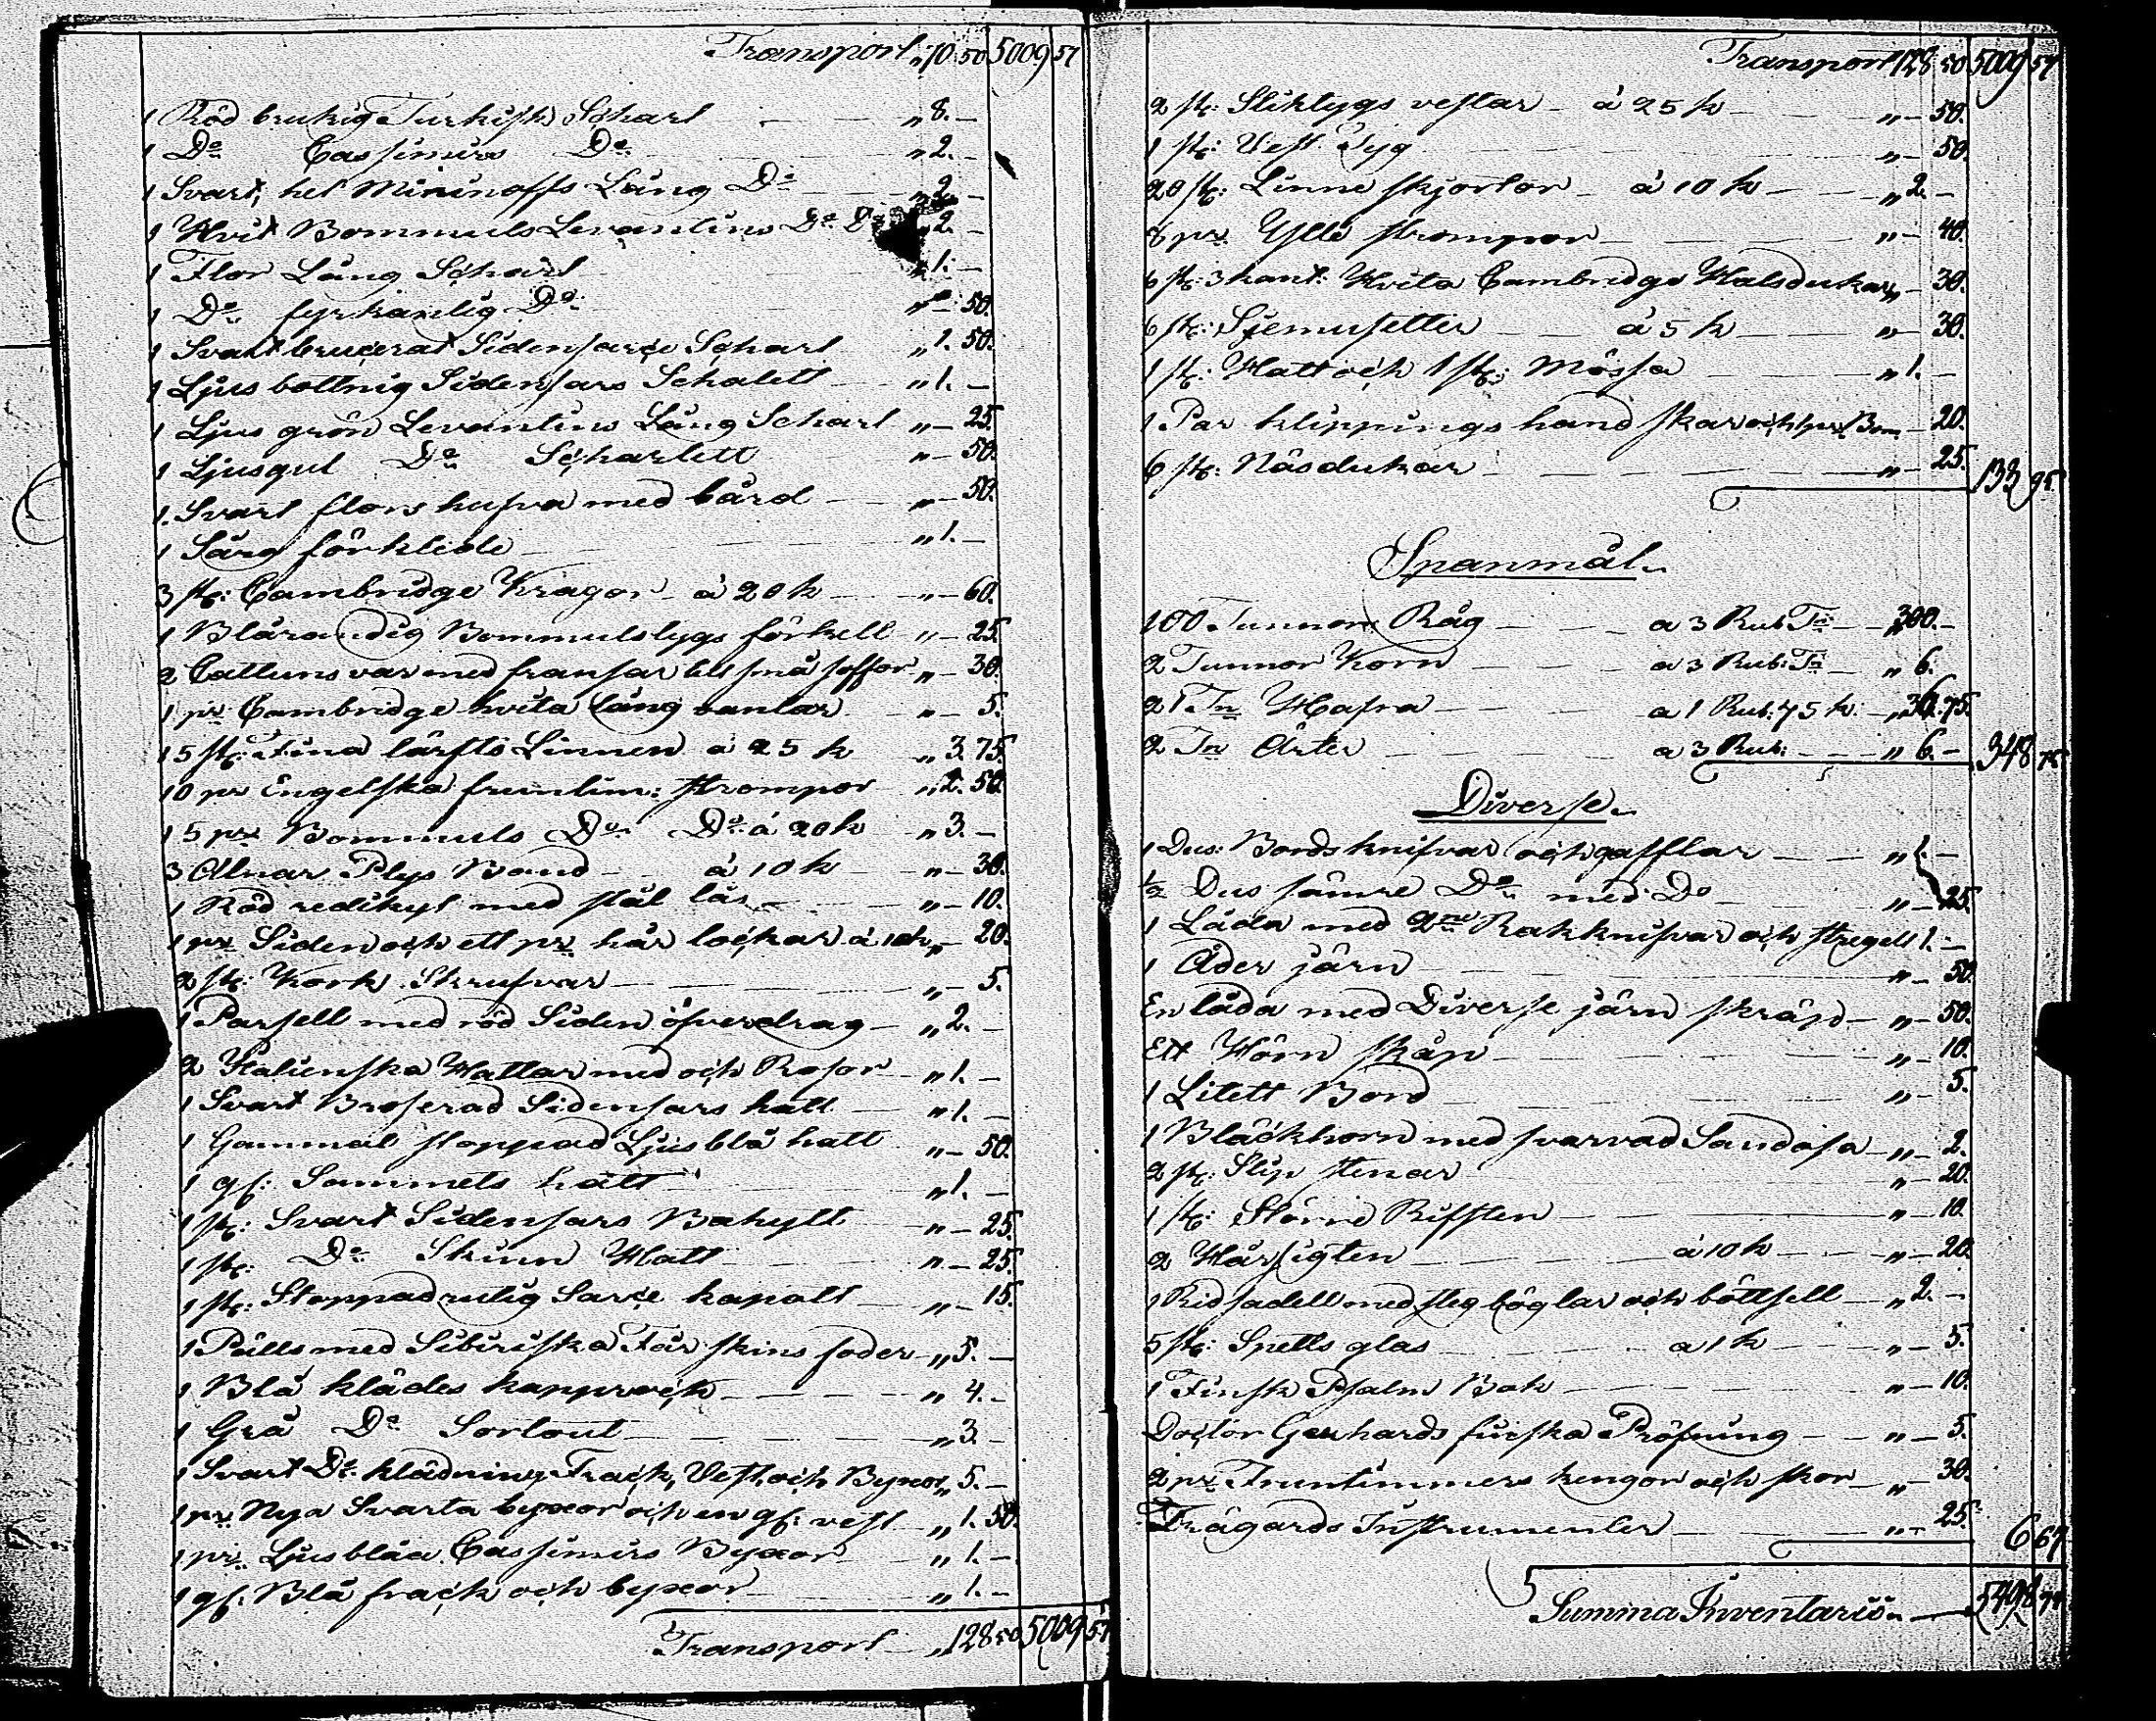 Transport „70 50 5009 57
1 Röd brukig Turkisk Scharl „8.–
1 Do Cassimirs Do „2.–
1 Svart, hel Mininoffs Lång Do „2.–
1 Hvit Bommuls Levantins Do Do „2.–
1 Flor Lång Scharl „1.–
1 Do fyrkantig Do „– 50.
1 Svart brucerat Sidensarce Scharl „1. 50.
1 Ljus bottnig Sidensars Schalett „1.–
1 Ljus grön Levantins Lång Scharl „– 25.
1 Ljusgul Do Scharlett „– 50.
1. Svart flors hufva med bård „– 50.
1 Särg förkläde „1.–
3 st: Cambridge Kragor à 20 k „– 60.
1 Blårandig Bommulstygs förkell „– 25.
2 Cattuns var med fransar till små soffor „– 30.
1 pr Cambridge hvita lång vantar „– 5.
15 st: Fina lärfts Linnen à 25 k „3. 75.
10 pr Engelska fruntim: strompor „2. 50.
15 pr Bommuls Do Do à 20 k „3.–
3 Alnar Plys Band à 10 k „– 30.
1 Röd redikyl med stål lås „– 10.
1 pr Siden och ett pr hår lockar à 10 k „– 20.
2 st: Kork Skrufvar „– 5.
1 Parsell med röd Siden öfverdrag „2.–
2 Italienska Hattar med och Rosor „1.–
1 Svart Broserad Sidensars hatt „1.–
1 Gammal stoppad Ljusblå hatt „– 50.
1 gl: Sammets hatt „1.–
1 st: Svart Sidensars Bahytt „– 25.
1 st: Do Skinn Hatt „– 25.
1 st: Stoppad rutig Sarce kapott „– 15.
1 Pälls med Sibiriska Får skins foder „5.–
1 Blå klädes kapprock „4.–
1 Grå Do Sortout „3.–
1 Svart Do klädning Frack, Vest och Byxor „5.–
1 pr Nya Svarta byxor och en gl: vest „1. 50.
1 pr Ljusblåa Cassimirs Byxor „1.–
1 gl. Blå frack och byxor „1.–
Transport „128 50 5009 57
Transport 128 50 5009 57
2 st: Sliktygs vestar à 25 k „– 50.
1 st: Vest Tyg „– 50.
20 st: Linne skjortor à 10 k „2.–
8 pr Ylle strompor „– 40.
6 st: 3 kant: Hvita Cambridge Halsdukar „– 30.
6 st: Sjemusetter à 5 k „– 30.
1 st: Hatt och 1 st: Mössa „1.–
1 Par klippings hand skar och 1 pr Bom – 20.
6 st: Näsdukar „– 25. 133 95
Spanmål.
100 Tunnor Råg a 3 Rub. Tn „300.–
2 Tunnor Korn a 3 Rub: Tn „6.
21 Tn Hafra a 1 Rub: 75 k: „36. 75.
2 Tn Ärter a 3 Rub: „6.– 348 75
Diverse.
1 Dus: Bords knifvar och gafflar „1.–
1/2 Dus sämre Do med Do „– 25.
1 Låda med 2ne Rakknifvar och stregell 1.–
1 Åder järn „– 50.
En låda med Diverse järn skräp „– 50.
Ett Hörn skåp „– 10.
1 Litett Bord „– 5.
1 Bläckhorn med svarvad Sandosa „– 2.
2 st: Slip stenar „– 20.
1 st: Större Riffsten „– 10.
2 Hårsigten à 10 k „– 20.
1 Ridsadell med steg böglar och böttsell „2.–
5 st: Spetts glas a 1 k „– 5.
1 Finsk Psalm Bok „– 10.
Doctor Gerhards finska Pröfning „– 5.
2 pr Fruntimmers kengor och skor „– 30.
Trägårds Instrumenter „– 25. 6 67
Summa Inventarii 5498 94